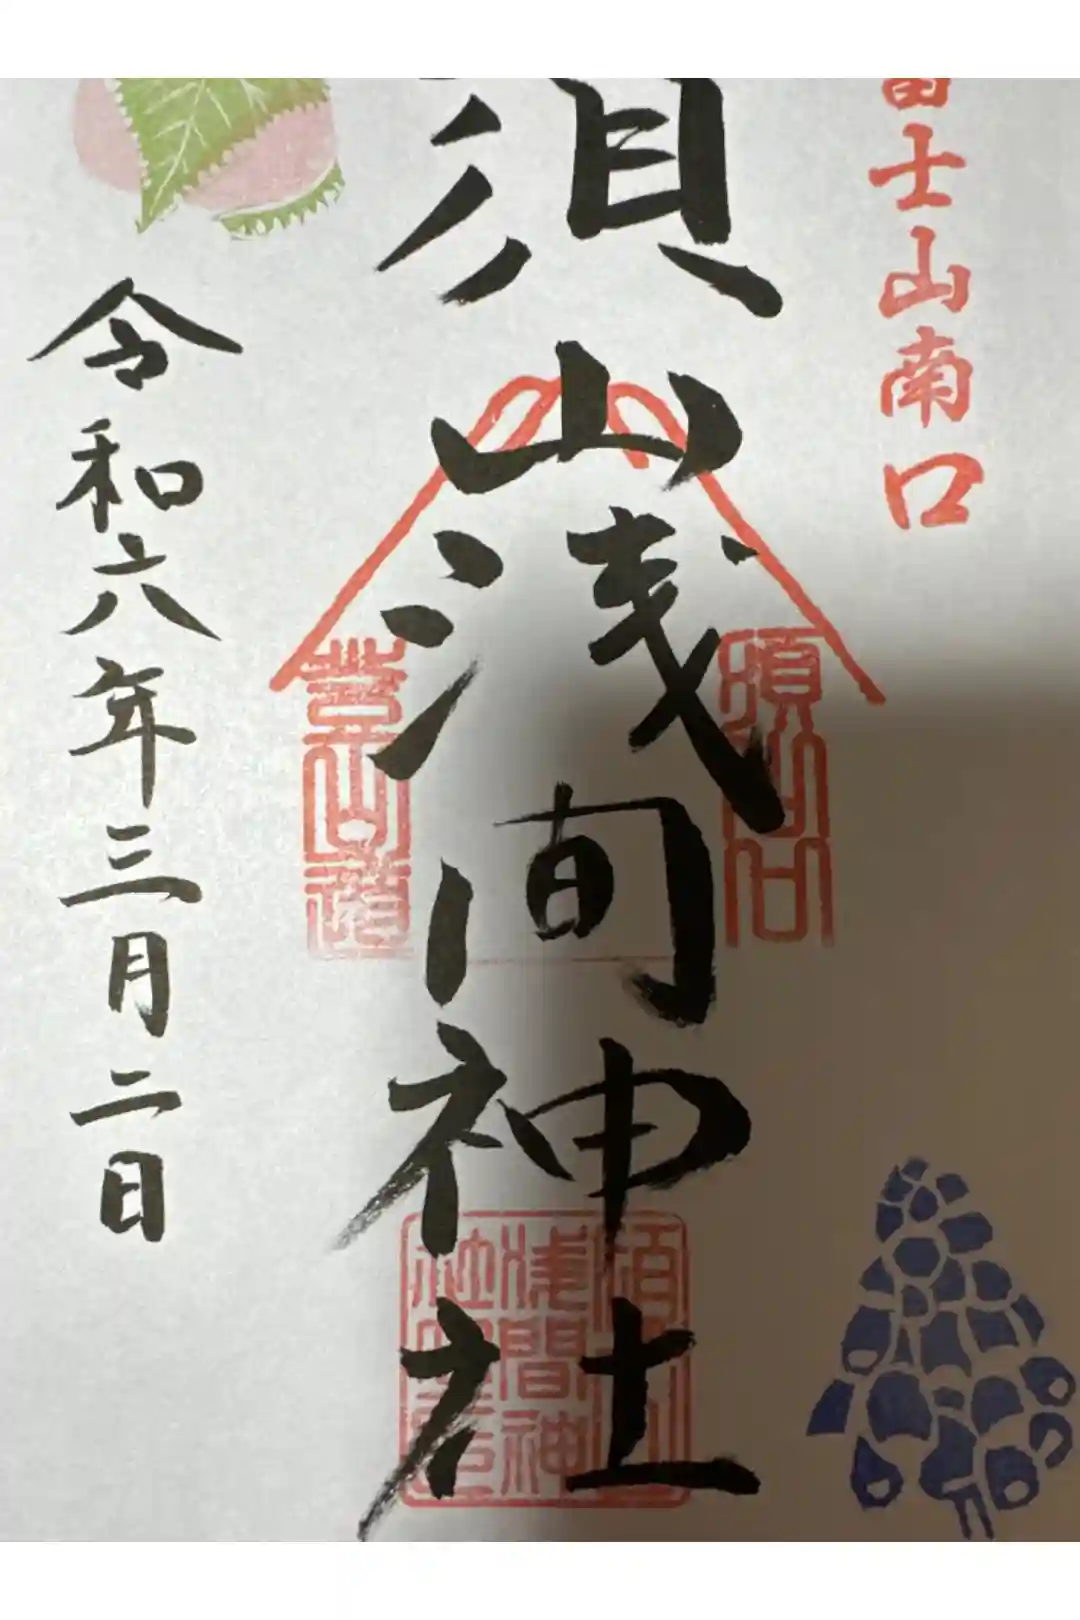 富士山南口
須山浅間神社
須山口
登山道
須山
浅間神
社
令和六年三月二日